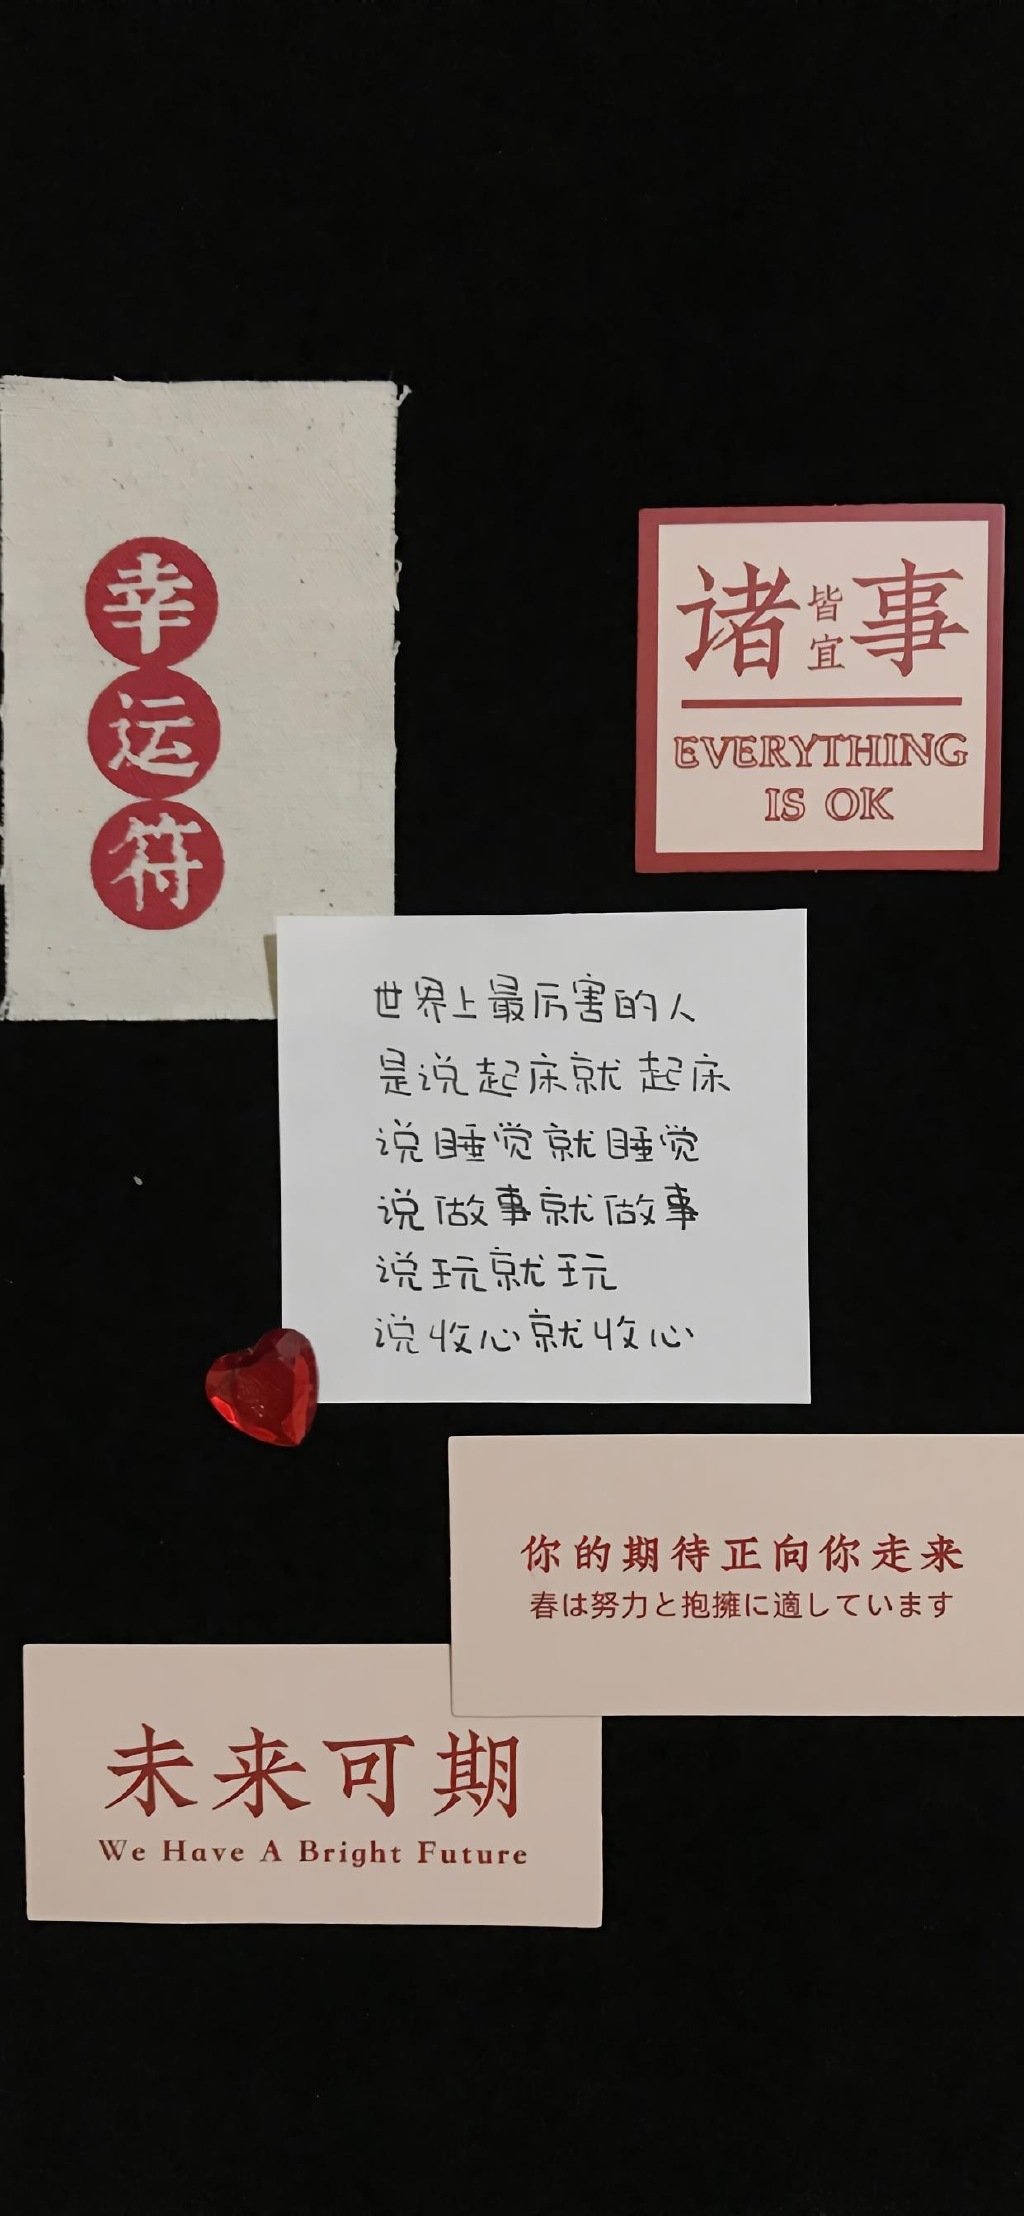 幸
运
符
诸皆宜事
EVERYTHING
IS OK
世界上最厉害的人
是说起床就起床
说睡觉就睡觉
说做事就做事
说玩就玩
说收心就收心
你的期待正向你走来
春は努力と抱擁に適しています
未来可期
We Have A Bright Future